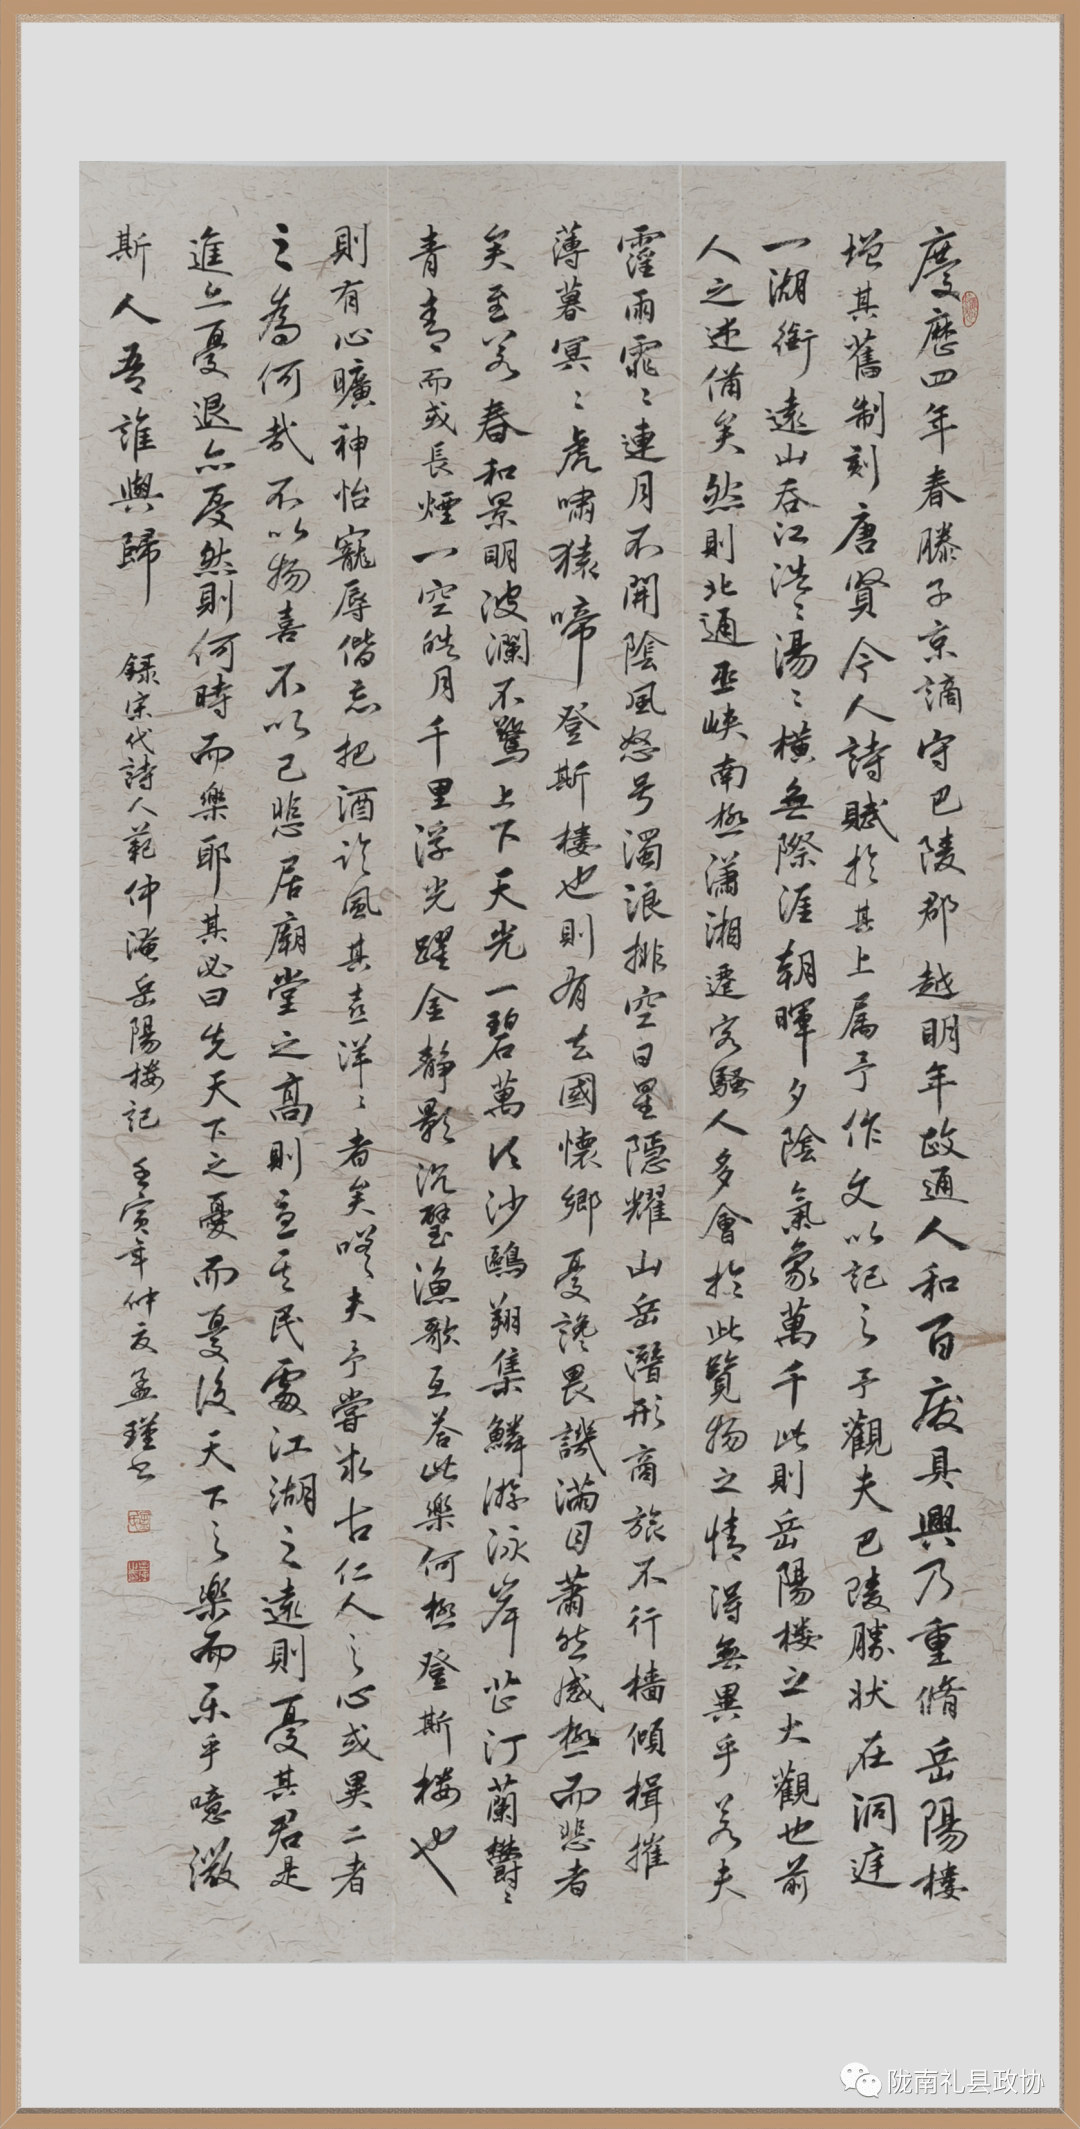 慶歷四年春滕子京謫守巴陵郡越明年政通人和百廢具興乃重脩岳陽楼
增其舊制刻唐賢今人詩賦於其上属予作文以記之予觀夫巴陵勝狀在洞庭
一湖銜遠山吞江浩〻湯〻橫無際涯朝暉夕陰氣象萬千此則岳陽楼之大觀也前
人之述備矣然則北通巫峽南極瀟湘遷客騷人多會於此覽物之情得無異乎若夫
霪雨霏〻連月不開陰風怒号濁浪排空日星隱耀山岳潛形商旅不行檣傾楫摧
薄暮冥〻虎嘯猿啼登斯楼也則有去國懷鄉憂讒畏譏滿目蕭然感極而悲者
矣至若春和景明波瀾不驚上下天光一碧萬頃沙鷗翔集鱗游泳岸芷汀蘭鬱〻
青青而或長煙一空皓月千里浮光躍金静影沉璧漁歌互答此樂何極登斯楼也
則有心曠神怡寵辱偕忘把酒臨風其喜洋〻者矣嗟夫予嘗求古仁人之心或異二者
之為何哉不以物喜不以己悲居廟堂之高則憂其民處江湖之遠則憂其君是
進亦憂退亦憂然則何時而樂耶其必曰先天下之憂而憂後天下之樂而乐乎噫微
斯人吾誰與歸 録宋代詩人範仲淹岳陽楼記 壬寅年仲夏孟瑾书
陇南礼县政协